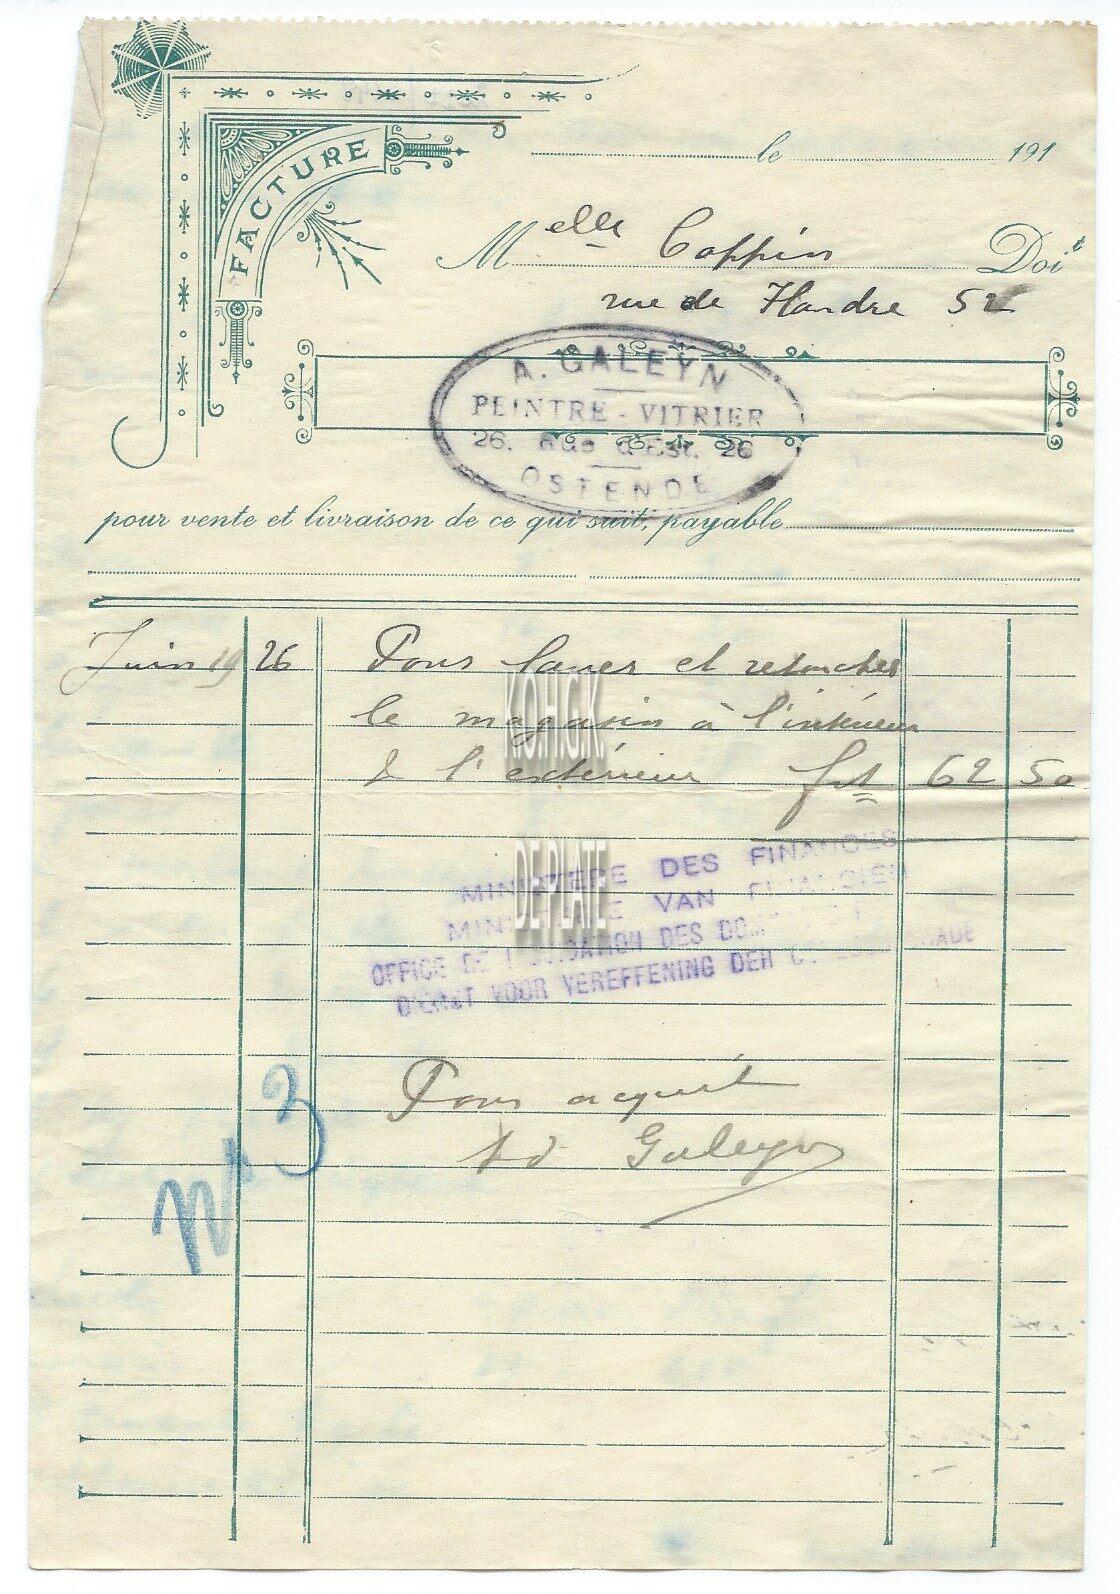 FACTURE
le 191
Melle Coppin Doit
rue de Flandre 52
A. GALEYN
PEINTRE - VITRIER
26. Rue d'Est. 26
OSTENDE
pour vente et livraison de ce qui suit, payable
Juin 19 26 Pour laver et retoucher
le magasin à l'intérieur
& l'extérieur frs 62 50
K.O.H.G.K.
DE PLATE
MINISTERE DES FINANCES
MINISTERIE VAN FINANCIEN
OFFICE DE LIQUIDATION DES
DIENST VOOR VEREFFENING DER
Pour acquit
Ad Galeyn
No 3